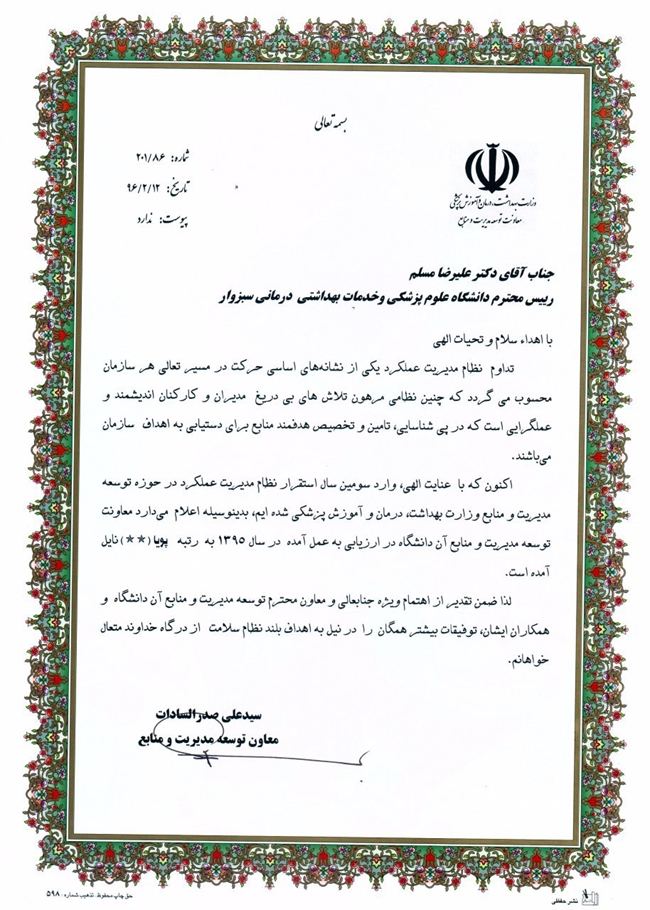 بسمه تعالی
شماره: ۲۰۱/۸۶
تاریخ: ۹۶/۲/۱۲
پیوست: ندارد
وزارت بهداشت، درمان و آموزش پزشکی
معاونت توسعه مدیریت و منابع
جناب آقای دکتر علیرضا مسلم
رییس محترم دانشگاه علوم پزشکی وخدمات بهداشتی درمانی سبزوار
با اهداء سلام و تحیات الهی
تداوم نظام مدیریت عملکرد یکی از نشانه‌های اساسی حرکت در مسیر تعالی هر سازمان
محسوب می گردد که چنین نظامی مرهون تلاش های بی دریغ مدیران و کارکنان اندیشمند و
عملگرایی است که در پی شناسایی، تامین و تخصیص هدفمند منابع برای دستیابی به اهداف سازمان
می‌باشند.
اکنون که با عنایت الهی، وارد سومین سال استقرار نظام مدیریت عملکرد در حوزه توسعه
مدیریت و منابع وزارت بهداشت، درمان و آموزش پزشکی شده ایم، بدینوسیله اعلام می‌دارد معاونت
توسعه مدیریت و منابع آن دانشگاه در ارزیابی به عمل آمده در سال ۱۳۹۵ به رتبه پویا(**) نایل
آمده است.
لذا ضمن تقدیر از اهتمام ویژه جنابعالی و معاون محترم توسعه مدیریت و منابع آن دانشگاه و
همکاران ایشان، توفیقات بیشتر همگان را در نیل به اهداف بلند نظام سلامت از درگاه خداوند متعال
خواهانم.
سیدعلی صدرالسادات
معاون توسعه مدیریت و منابع
نشر حفظی
حق چاپ محفوظ - تذهیب شماره - ۵۹۸